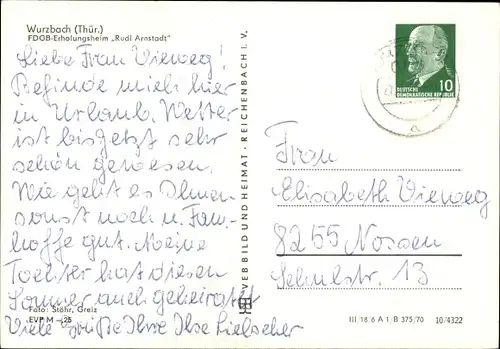 Wurzbach (Thür.)
FDGB-Erholungsheim „Rudi Arnstadt"
Liebe Frau Vieweg!
Befinde mich hier
in Urlaub. Wetter
ist bisjetzt sehr
schön gewesen.
Wie geht es Ihnen
sonst noch u. Fam.
hoffe gut. Meine
Tochter hat diesen
Sommer auch geheiratet
Viele Grüße Ihre Ilse Liebscher
Foto: Stöhr, Greiz
EVP M -,25
VEB BILD UND HEIMAT · REICHENBACH I. V.
10
DEUTSCHE
DEMOKRATISCHE REPUBLIK
a
Frau
Elisabeth Vieweg
8255 Nossen
Schulstr. 13
III/18/6 A 1/B 375/70 10/4322